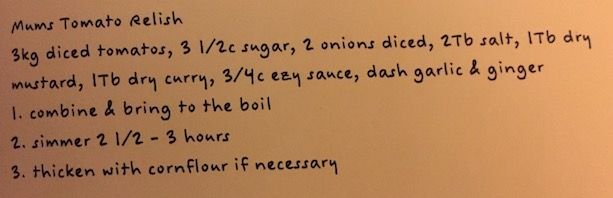 Mums Tomato Relish
3kg diced tomatos, 3 1/2c sugar, 2 onions diced, 2Tb salt, 1Tb dry
mustard, 1Tb dry curry, 3/4c ezy sauce, dash garlic & ginger
1. combine & bring to the boil
2. simmer 2 1/2 - 3 hours
3. thicken with cornflour if necessary